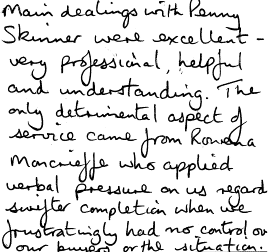 Main dealings with Penny
Skinner were excellent -
very professional, helpful
and understanding. The
only detrimental aspect of
service came from Rowena
Moncrieffe who applied
verbal pressure on us regard
swifter completion when we
frustratingly had no control ov
our buyers or the situation.